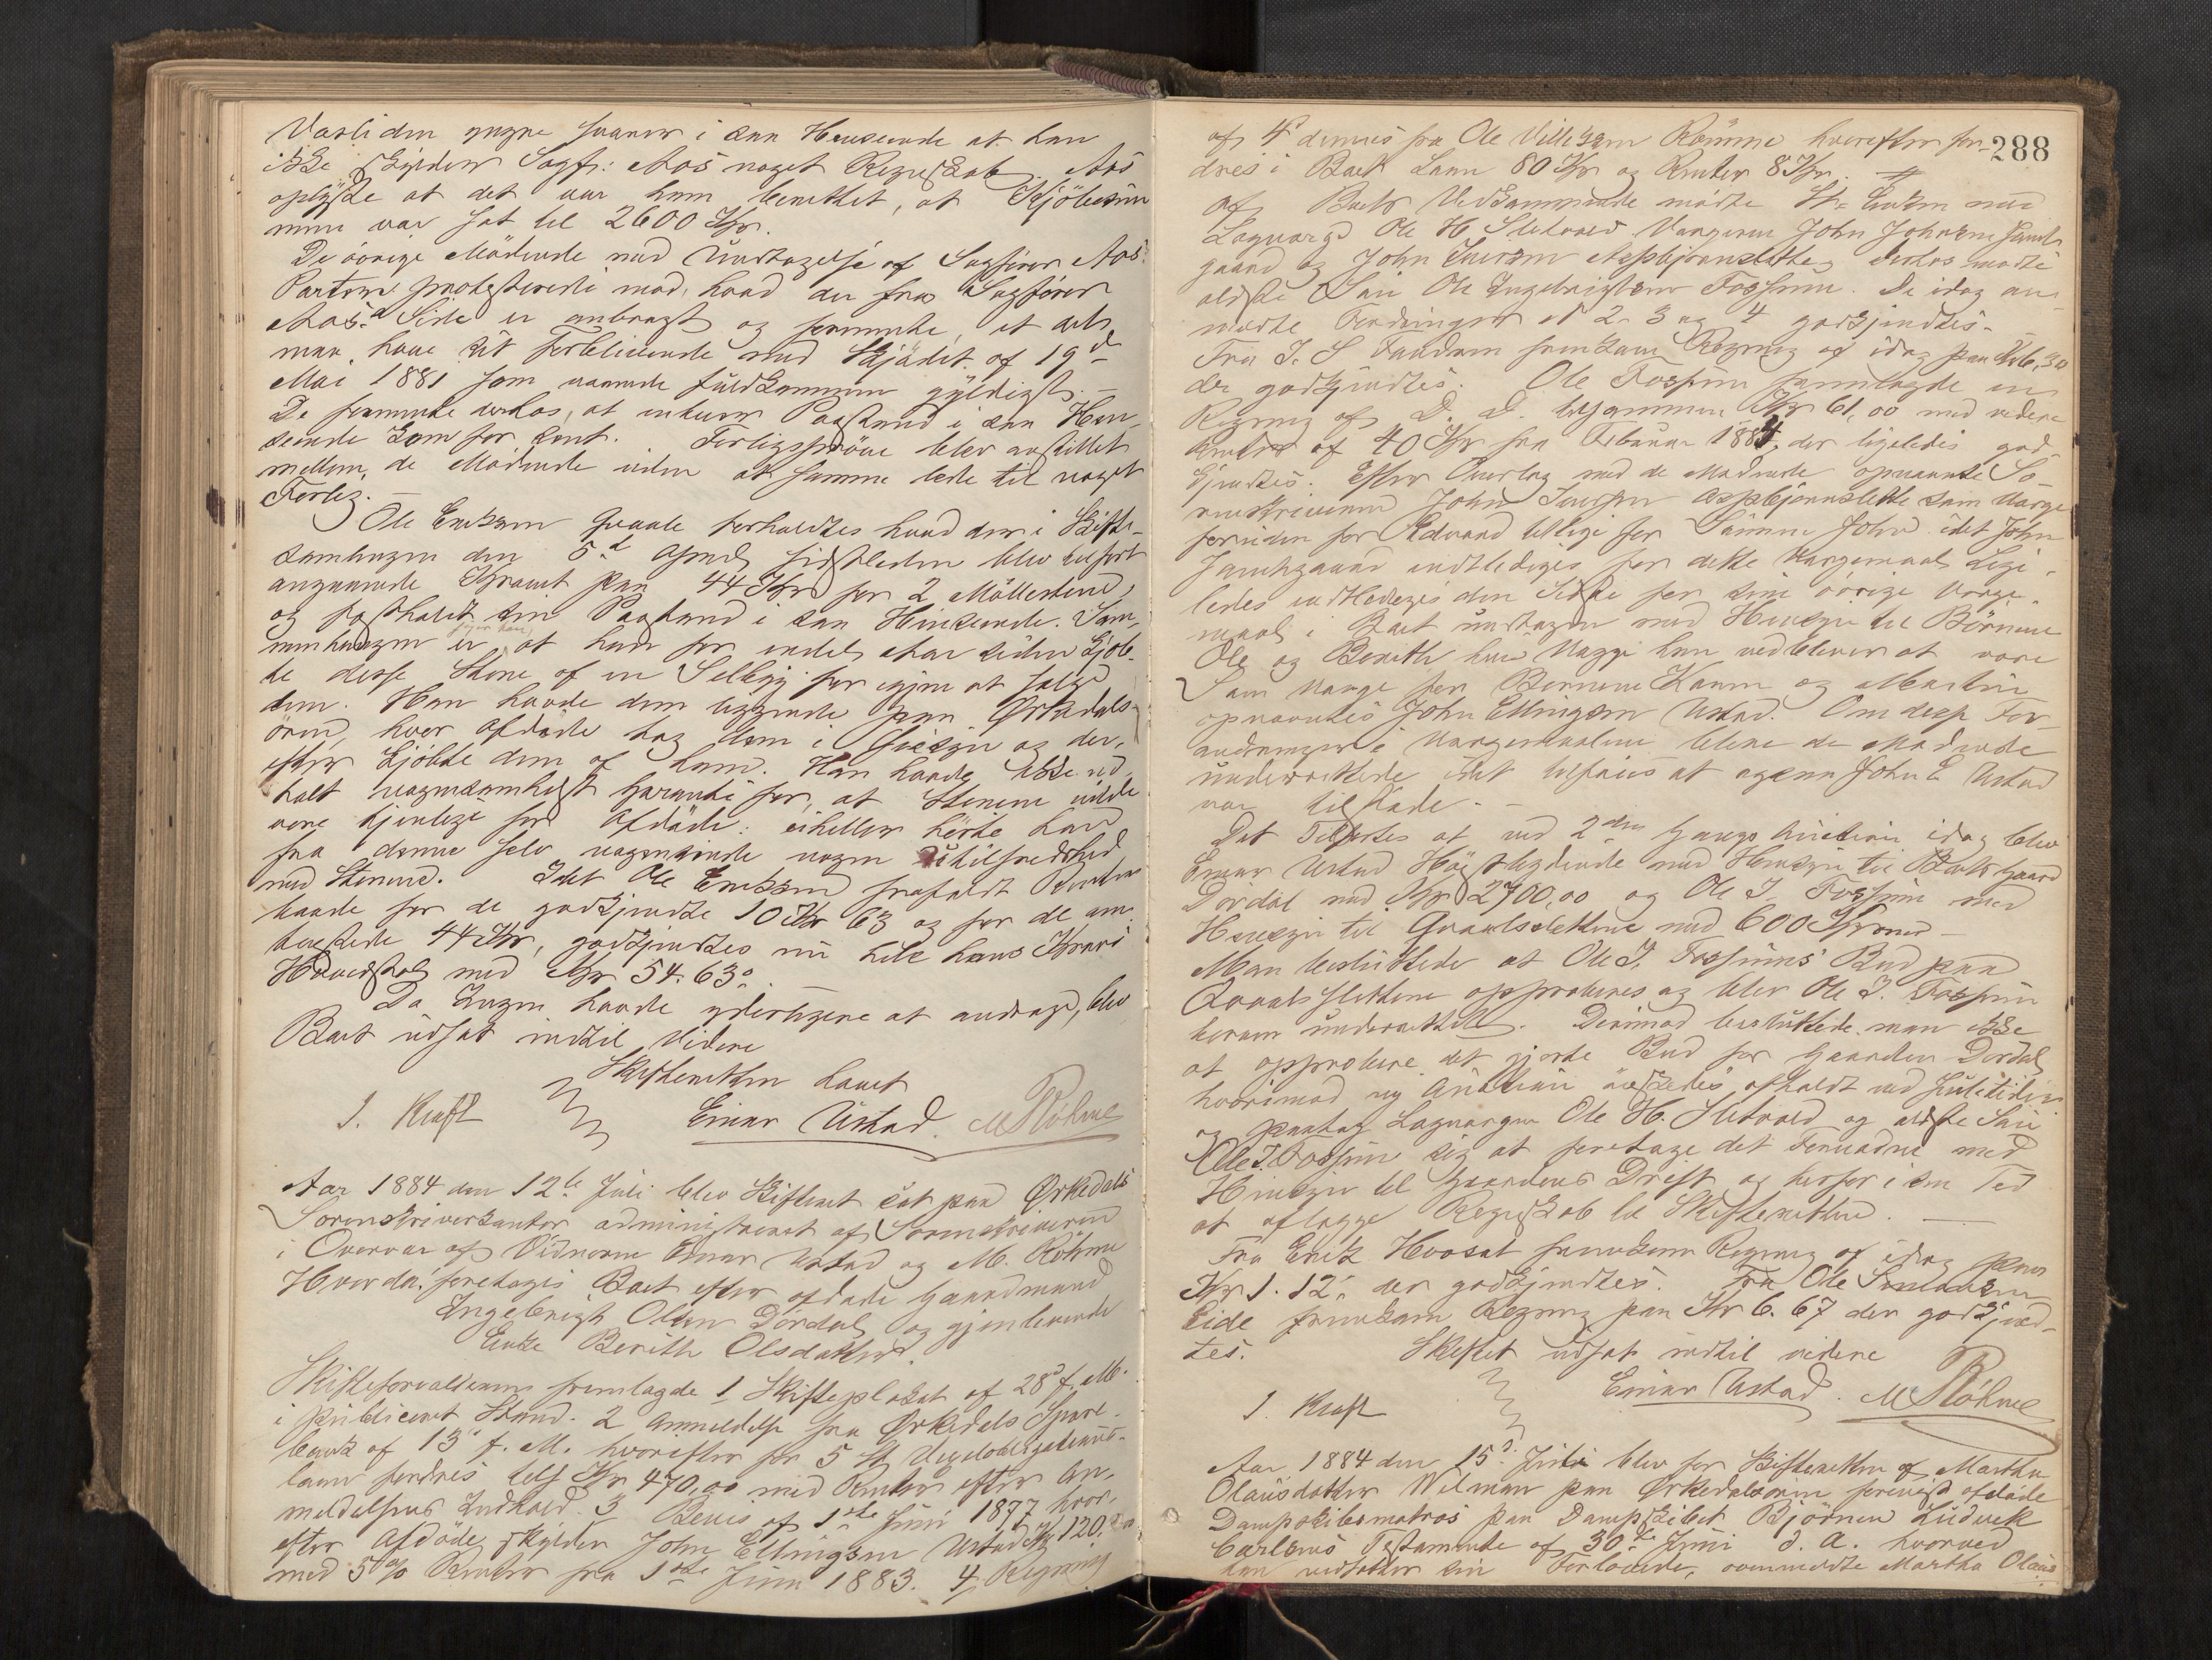 Vasliden svarer i saa Henseende at han
ikke skylder Sagf: Aas noget Regnskab. Aas
oplyste at det var ham berettet, at Kjöbesum
men var sat til 2600 Kr.
De övrige Mödende med Undtagelse af Sagförer Aas'
Parter protesterede mod, hvad der fra Sagförer
Aas's Side er anbragt og formente, at det
maa have sit Forblivende med Skjödet af 19d
Mai 1881 som værende fuldkommen gyldigt. –
De formente derhos, at enhver Paastand i saa Hen-
seende kom for sent. Forligspröve blev anstillet
mellem de Mödende uden at samme ledte til noget
Forlig. –
Ole Eriksen Qvaale foreholdtes hvad der i Skifte-
samlingen den 5d April sidstleden blev tilfört
angaaende Kravet paa 44 Kr for 2 Möllestene,
og fastholdt sin Paastand i saa Henseende. Sam-
menhængen er, siger han, at han for endel Aar siden kjöb-
te disse Stene af en Selbygg for igjen at sælge
dem. Han havde dem liggende paa Ørkedals-
ören, hvor Afdöde tog dem i Öiesyn og der-
efter kjöbte dem af ham. Han havde ikke ud-
talt nogensomhelst Garanti for, at Stenene vilde
være tjenlige for Afdöde: eiheller hörte han
fra denne selv nogensinde nogen Utilfredshed
med Stenene. Idet Ole Eriksen frafaldt Renter
baade for de godkjendte 10 Kr 63 og for de om-
tvistede 44 Kr, godkjendtes nu hele hans Krav i
Hovedstol med Kr 54.63.
Da Ingen havde yderligere at andrage, blev
Boet udsat indtil Videre
Skifteretten hævet
J. Kraft Einar Ustad. M Röhme
Aar 1884 den 12te Juli blev Skifteret sat paa Ørkedals
Sorenskriverkontor administreret af Sorenskriveren
i Overvær af Vidnerne Einar Ustad og M. Röhme
Hvorda: foretoges Boet efter afdöde Gaardmand
Ingebrigt Olsen Dördal og gjenlevende
Enke Berith Olsdatter.
Skifteforvalteren fremlagde 1 Skifteplakat af 28d f. M.
i publiceret Stand. 2 Anmeldelse fra Ørkedals Spare-
bank af 13d f. M. hvorefter for 5 St Vexelobligations-
laan fordres tils Kr 470,00 med Renter efter An-
meldelsens Indhold. 3 Bevis af 1ste Juni 1877 hvor-
efter Afdöde skylder John Ellingsen Ustad Kr 120.00
med 5 % Renter fra 1ste Juni 1883. 4 Regning
288
af 4d dennes fra Ole Villiksen Römme hvorefter for-
dres i Boet Laan 80 Kr og Renter 8 Kr.
Af Boets Vedkommende mödte St: Enken med
Lagværge Ole H Sletvold Værgerne John Johnsen
gaard og John Iversen Aspbjörnslette, derhos mödte
ældste Sön Ole Ingebrigtsen Fossum. De idag an-
meldte Fordringer No 2- 3 og 4 godkjendtes. –
Fra J. S. Fandrem fremkom Regning af idag paa Kr 6,30
der godkjendtes. Ole Fossum fremlagde en
Regning af D. D. tilsammen Kr 61,00 med videre
Renter af 40 Kr fra Februar 1884, der ligeledes god-
kjendtes. Efter Overlæg med de Mödende opnævnte So-
renskriveren John Iversen Aspbjörnslette som Værge
foruden for Edvard tillige for Sönnen John idet John
gaard entlediges for dette Værgemaal. Lige-
ledes entlediges den Sidste for sine övrige Værge-
maal i Boet undtagen med Hensyn til Börnene
Ole og Berith hvis Værge han vedbliver at være
Som Værge for Börnene Karen og Martin
opnævntes John Ellingsen Ustad. Om disse For-
andringer i Værgemaalene bleve de Mödende
underrettede idet tilföies at ogsaa John E Ustad
var tilstede. –
Det Tilförtes at ved 2den Gangs Auktion idag blev
Einar Ustad Höistbydende med Hensyn til Boets Gaard
Dördal med Kr 2700,00 og Ole I. Fossum med
Hensyn til Qvaalssletten med 600 Kroner –
Man besluttede at Ole I. Fossums Bud paa
Qvaalssletten approberes og blev Ole I. Fossum
herom underrettet. Derimod besluttede man ikke
at approbere det gjorte Bud for Gaarden Dördal
hvorimod ny Auktion önskedes afholdt ved Juletider
og paatog Lagværgen Ole H. Sletvold og ældste Sön
Ole I. Fossum sig at foretage det Fornödne med
Hensyn til Gaardens Drift og herfor i sin Tid
at aflægge Regnskab til Skifteretten. –
Fra Erik Hoosat fremkom Regning af idag paa
Kr 1.12: der godkjendtes. Fra Ole
Eide fremkom Regning paa Kr 6.67 der godkjend-
tes. Skiftet udsat indtil videre
J. Kraft Einar Ustad. M Röhme
Aar 1884 den 15d Juli blev for Skifteretten af Martha
Olausdatter Wilman paa Ørkedalsören forevist afdöde
Dampskibsmatros paa Dampskibet Björnen Ludvik
Carlsens Testamente af 30te Juni d. A. hvorved
han indsætter sin Forlovede, ovenmeldte Martha Olaus